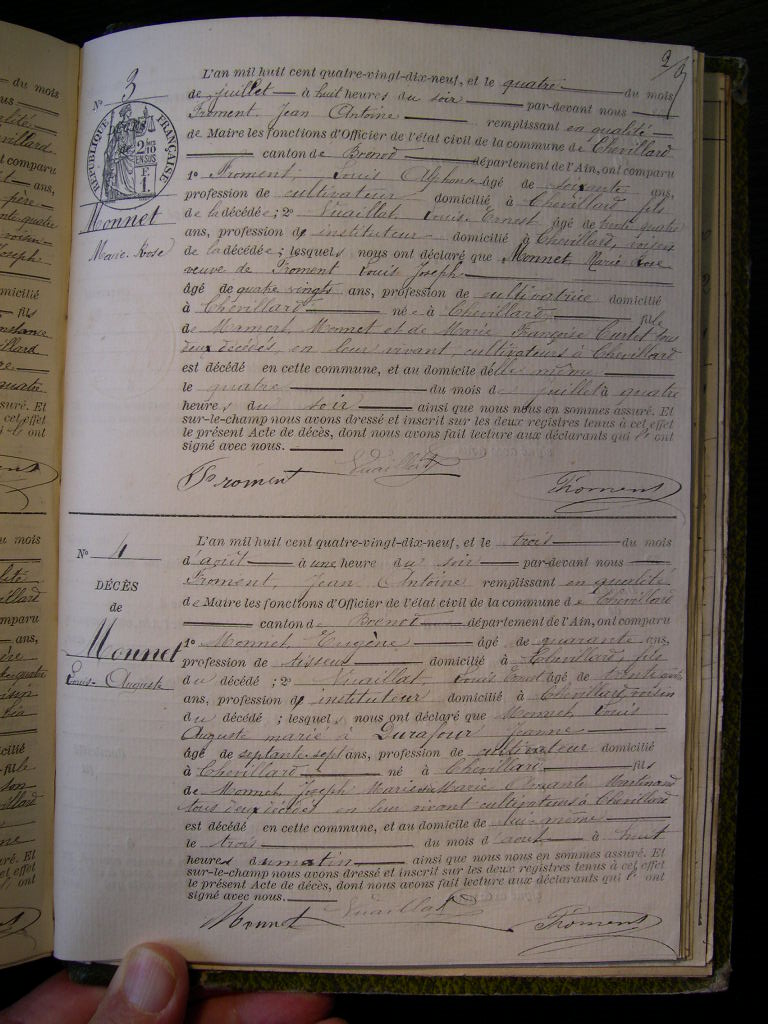 2/9
N° 3
RÉPUBLIQUE FRANÇAISE
Monnet
Marie Rose
L'an mil huit cent quatre-vingt-dix-neuf, et le quatre du mois
de juillet à huit heures du soir par-devant nous
Froment, Jean Antoine remplissant en qualité
de Maire les fonctions d'Officier de l'état civil de la commune de Chevillard
canton de Brénod département de l'Ain, ont comparu
1° Froment, Louis Alphonse âgé de soixante ans,
profession de cultivateur domicilié à Chevillard fils
de la décédée ; 2° Vuaillat, Louis Ernest âgé de trente quatre
ans, profession d' instituteur domicilié à Chevillard, voisin
de la décédée ; lesquels nous ont déclaré que Monnet, Marie Rose
veuve de Froment Louis Joseph
âgé de quatre vingts ans, profession de cultivatrice domicilié
à Chevillard née à Chevillard fille
de Mamert, Monnet et de Marie Françoise Curtet tous
deux décédés, en leur vivant, cultivateurs à Chevillard
est décédé en cette commune, et au domicile d'elle même
le quatre du mois de juillet à quatre
heures du soir ainsi que nous nous en sommes assuré. Et
sur-le-champ nous avons dressé et inscrit sur les deux registres tenus à cet effet
le présent Acte de décès, dont nous avons fait lecture aux déclarants qui l' ont
signé avec nous.
Froment Vuaillat Froment
N° 4
DÉCÈS
de
Monnet
Louis-Auguste
L'an mil huit cent quatre-vingt-dix-neuf, et le trois du mois
d'août à une heure du soir par-devant nous
Froment, Jean Antoine remplissant en qualité
de Maire les fonctions d'Officier de l'état civil de la commune de Chevillard
canton de Brénod département de l'Ain, ont comparu
1° Monnet, Eugène âgé de quarante ans,
profession de tisseur domicilié à Chevillard, fils
du décédé ; 2° Vuaillat, Louis Ernest âgé de trente
ans, profession d' instituteur domicilié à Chevillard, voisin
du décédé ; lesquels nous ont déclaré que Monnet, Louis
Auguste marié à Durafour Jeanne
âgé de septante sept ans, profession de cultivateur domicilié
à Chevillard né à Chevillard fils
de Monnet, Joseph Marie et de Marie Martinand
tous deux décédés en leur vivant cultivateurs à Chevillard
est décédé en cette commune, et au domicile de lui-même
le trois du mois d'août à huit
heures du matin ainsi que nous nous en sommes assuré. Et
sur-le-champ nous avons dressé et inscrit sur les deux registres tenus à cet effet
le présent Acte de décès, dont nous avons fait lecture aux déclarants qui l' ont
signé avec nous.
Monnet Vuaillat Froment